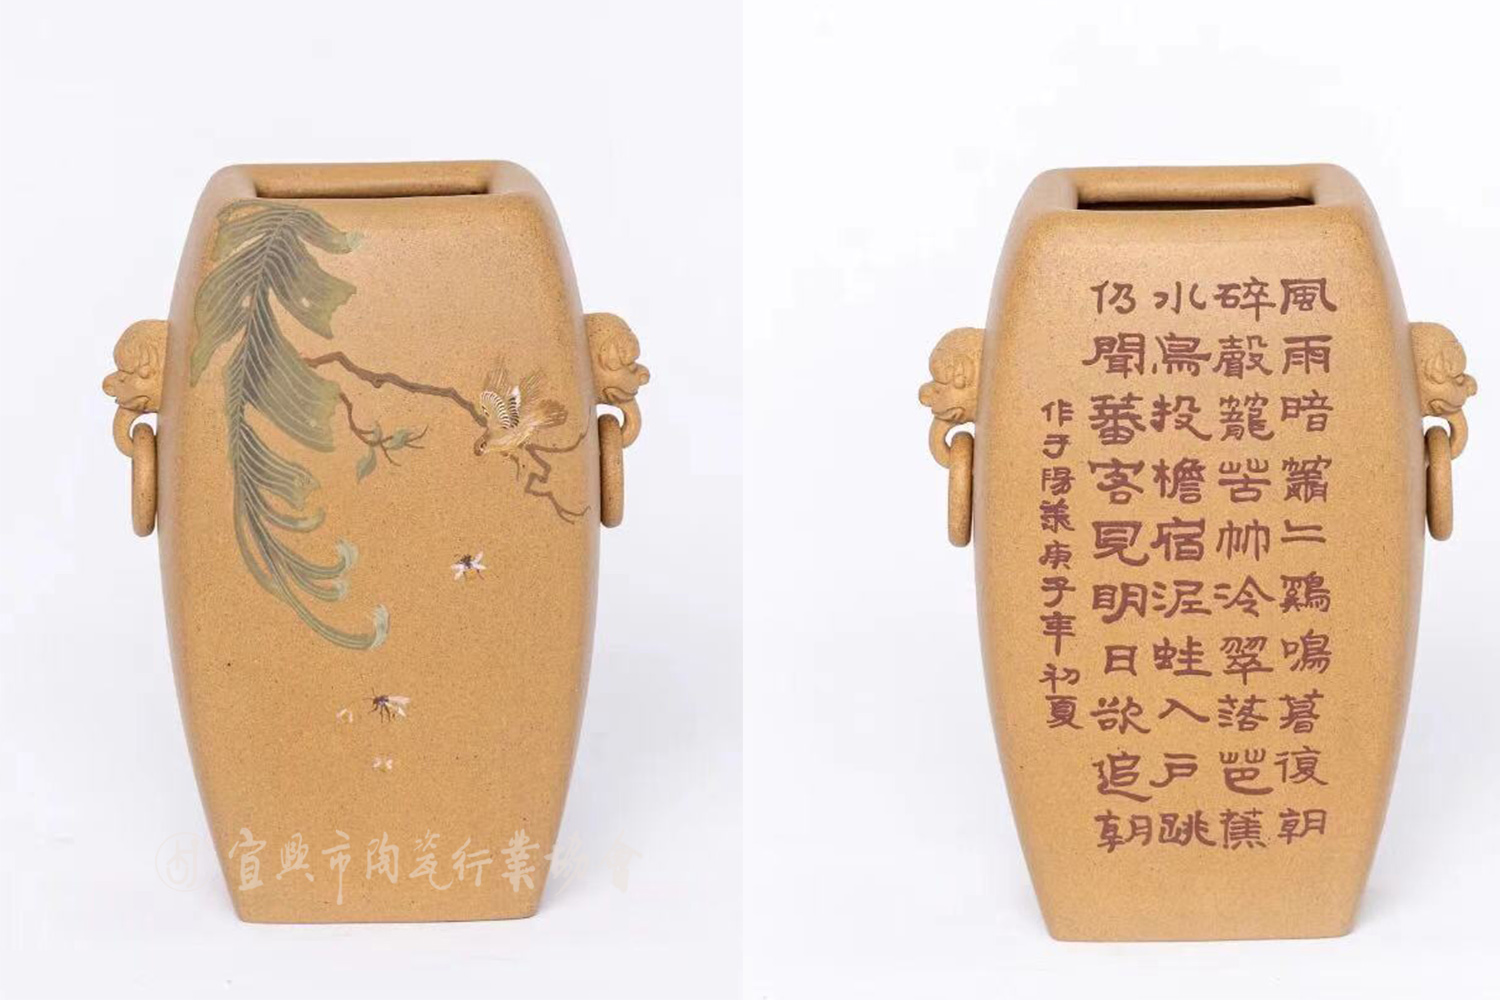 風雨暗簫二鷄鳴暮復朝
碎聲籠苦竹冷翠落芭蕉
水鳥投檐宿泥蛙入戶跳
仍聞蕃客見明日欲追朝
作于陽羨庚子年初夏
宜興市陶瓷行業協會